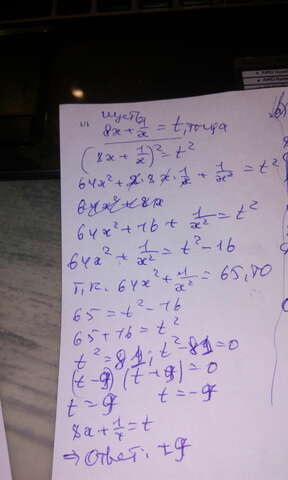 Пусть
8x + 1/x = t, тогда
(8x + 1/x)² = t²
64x² + 2·8x·1/x + 1/x² = t²
64x² + 16 + 1/x² = t²
64x² + 1/x² = t² - 16
т.к. 64x² + 1/x² = 65, то
65 = t² - 16
65 + 16 = t²
t² = 81; t² - 81 = 0
(t - 9) (t + 9) = 0
t = 9 t = -9
8x + 1/x = t
⇒ Ответ: ±9